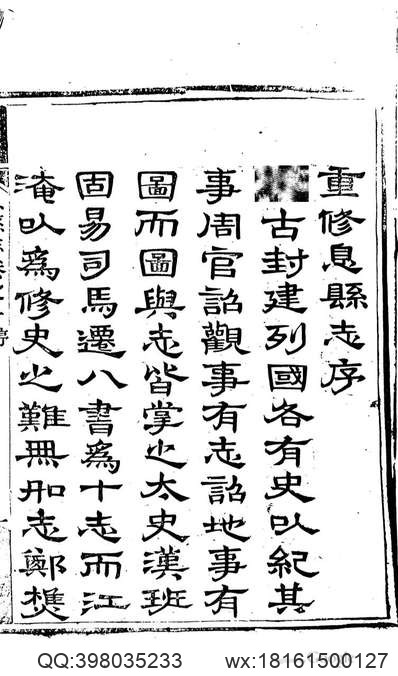 重修息縣志序
古封建列國各有史㠯紀其
事周官詔觀事有志詔地事有
圖而圖與志皆掌之太史漢班
固易司馬遷八書爲十志而江
淹㠯爲修史之難無如志鄭樵
QQ:398035233 wx:18161500127